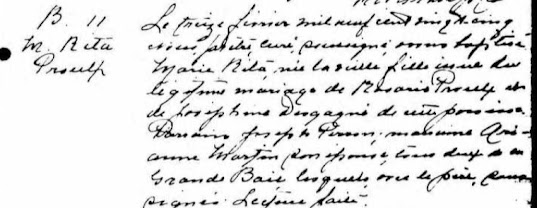 B. 11
M. Rita
Proulx
Le treize février mil neuf cent vingt cinq
nous, prêtre, curé, soussigné, avons baptisé
Marie Rita, née la veille fille issue du
légitime mariage de Rosario Proulx et
de Joséphine Desgagné de cette paroisse.
Parrain, Joseph, marraine,
Martin son épouse, tous deux de
Grande Baie lesquels avec le père,
signés. Lecture faite.